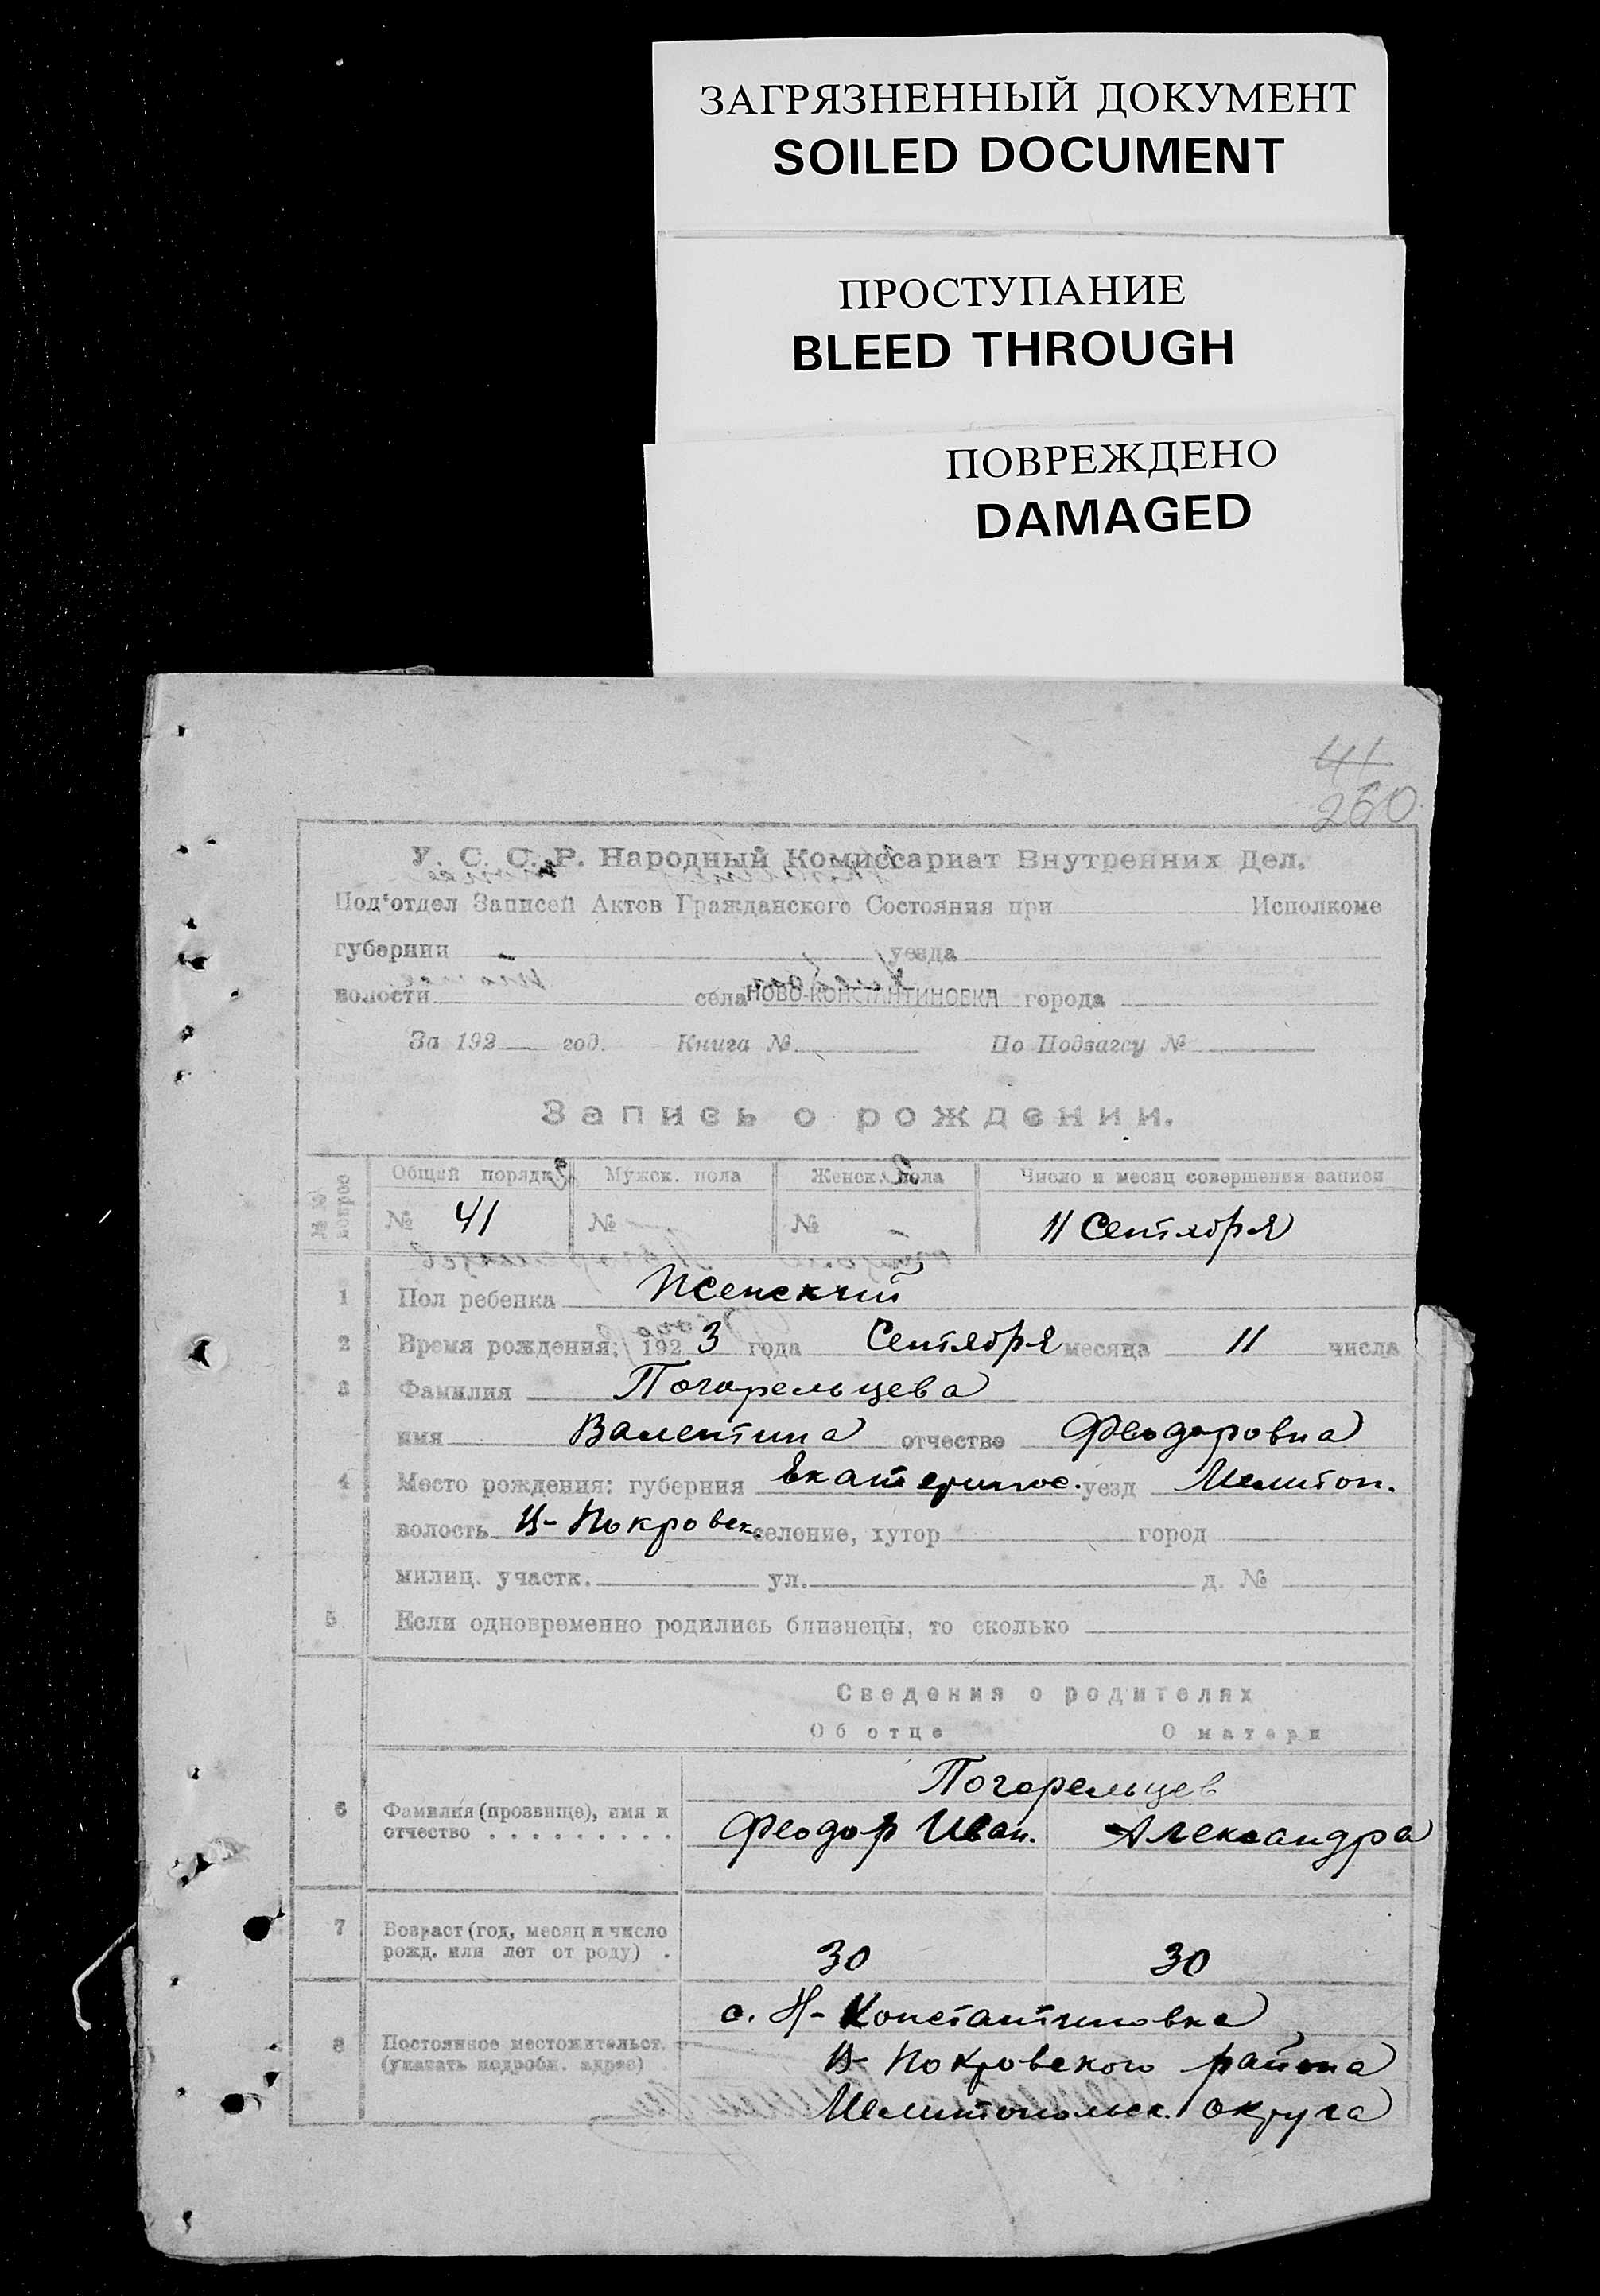 ЗАГРЯЗНЕННЫЙ ДОКУМЕНТ
SOILED DOCUMENT
ПРОСТУПАНИЕ
BLEED THROUGH
ПОВРЕЖДЕНО
DAMAGED
41
260
У. С. С. Р. Народный Комиссариат Внутренних Дел.
Под'отдел Записей Актов Гражданского Состояния при Исполкоме
губернии уезда
волости села НОВО-КОНСТАНТИНОВКА города
За 192 год. Книга № По Подзагсу №
Запись о рождении.
№№ вопрос Общий порядк. Мужск. пола Женск. пола Число и месяц совершения записи
№ 41 № — № — 11 Сентября
1 Пол ребенка Женский
2 Время рождения: 1923 года Сентября месяца 11 числа
3 Фамилия Погорельцева
имя Валентина отчество Феодоровна
4 Место рождения: губерния Екатеринос. уезд Мелитоп.
волость Ц-Покровск. селение, хутор город
милиц. участк. ул. д. №
5 Если одновременно родились близнецы, то сколько
Сведения о родителях
Об отце О матери
Погорельцев
6 Фамилия (прозвище), имя и
отчество . . . . . . . . . Феодор Иван. Александра
7 Возраст (год, месяц и число
рожд. или лет от роду) . 30 30
с. Н-Константиновка
8 Постоянное местожительст.
(указать подробн. адрес) Ц-Покровского района
Мелитопольск. округа